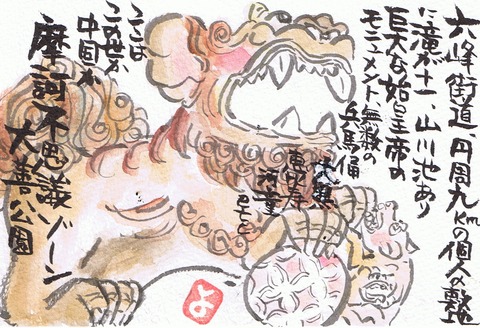 六峰街道、円周九kmの個人の敷地
に滝が十一、山川池あり
巨大な始皇帝の
モニュメント 無数の
兵馬俑
恵比寿
河童
etc
ここは
この世か
中国か
摩訶不思議ゾーン
大善公園
よ